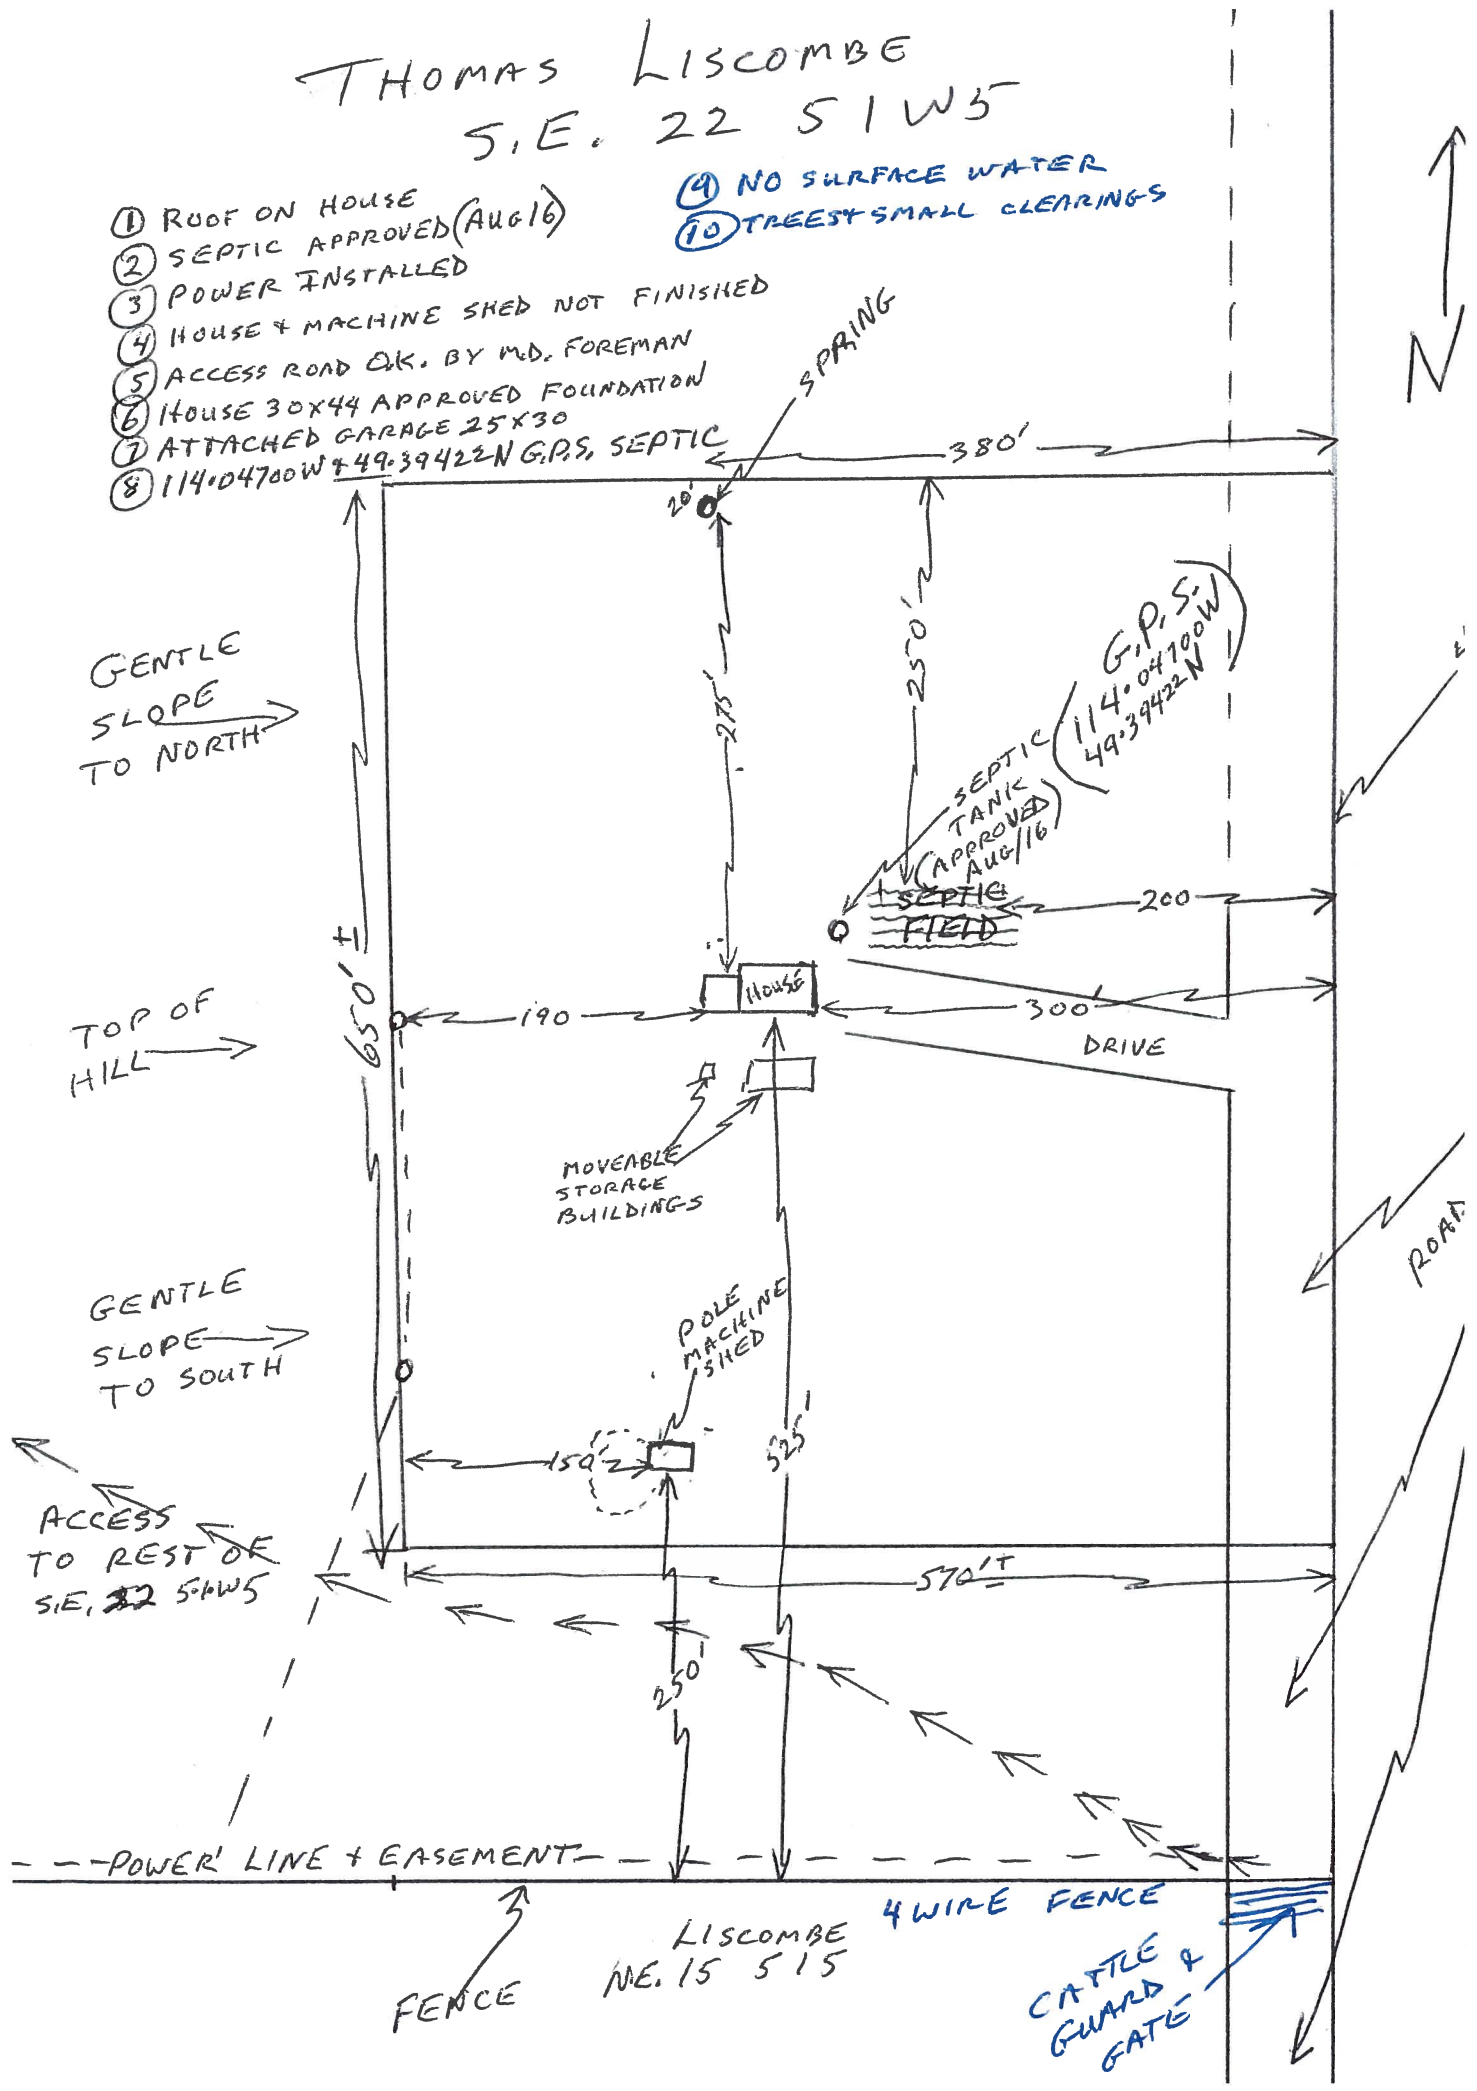 THOMAS LISCOMBE
S.E. 22 5 1 W5
① ROOF ON HOUSE
② SEPTIC APPROVED (AUG 16)
③ POWER INSTALLED
④ HOUSE + MACHINE SHED NOT FINISHED
⑤ ACCESS ROAD O.K. BY M.D. FOREMAN
⑥ HOUSE 30X44 APPROVED FOUNDATION
⑦ ATTACHED GARAGE 25X30
⑧ 114.04700W + 49.39422N G.P.S. SEPTIC
⑨ NO SURFACE WATER
⑩ TREES + SMALL CLEARINGS
N
SPRING
380'
20'
275'
250'
G.P.S.
114.04700W
49.39422N
SEPTIC
TANK
(APPROVED
AUG/16)
SEPTIC
FIELD
200
GENTLE
SLOPE
TO NORTH
650' ±
HOUSE
190
300'
DRIVE
TOP OF
HILL
MOVEABLE
STORAGE
BUILDINGS
ROAD
GENTLE
SLOPE
TO SOUTH
POLE
MACHINE
SHED
150'
525'
ACCESS
TO REST OF
S.E. 22 5·1·W5
570' ±
250'
POWER LINE + EASEMENT
FENCE
LISCOMBE
NE. 15 5 1 5
4 WIRE FENCE
CATTLE
GUARD &
GATE